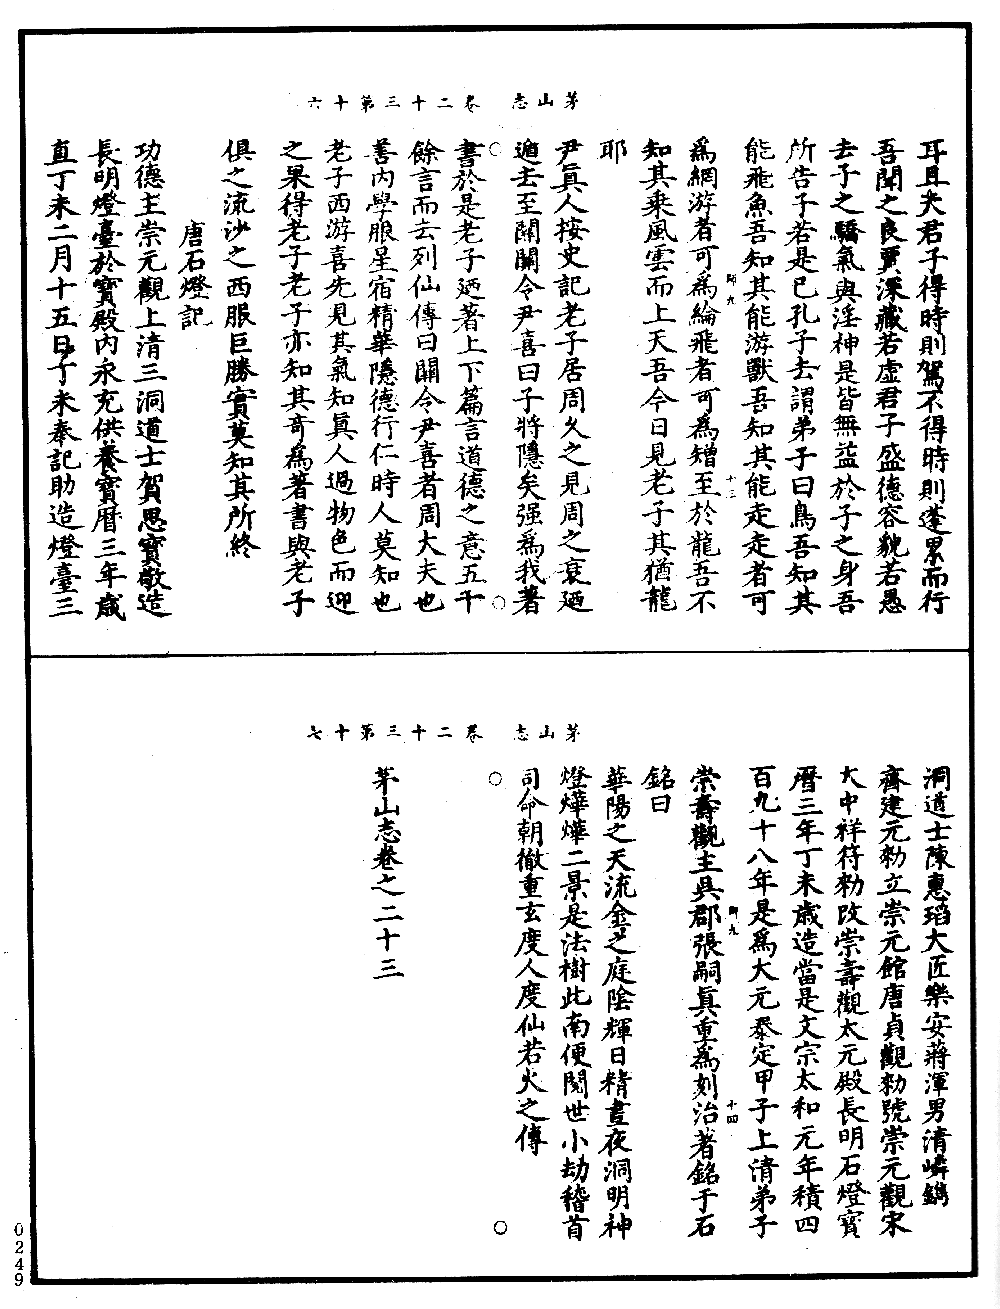 茅山志　卷二十三第十六
耳且夫君子得時則駕不得時則蓬累而行
吾聞之良賈深藏若虛君子盛德容貌若愚
去子之驕氣與淫神是皆無益於子之身吾
所告子若是已孔子去謂弟子曰鳥吾知其
能飛魚吾知其能游獸吾知其能走走者可
師九　十三
爲網游者可爲綸飛者可爲矰至於龍吾不
知其乘風雲而上天吾今日見老子其猶龍
耶
尹眞人按史記老子居周久之見周之衰廼
遁去至關關令尹喜曰子將隱矣强爲我著
書於是老子廼著上下篇言道德之意五千
餘言而去列仙傳曰關令尹喜者周大夫也
善內學服星宿精華隱德行仁時人莫知也
老子西游喜先見其氣知眞人過物色而迎
之果得老子老子亦知其奇爲著書與老子
俱之流沙之西服巨勝實莫知其所終
唐石燈記
功德主崇元觀上清三洞道士賀思寶敬造
長明燈臺於寶殿內永充供養寶曆三年歲
直丁未二月十五日丁未奉記助造燈臺三
茅山志　卷二十三第十七
洞道士陳惠瑫大匠樂安蔣渾男清嶙鐫
齊建元勑立崇元館唐貞觀勑號崇元觀宋
大中祥符勑改崇壽觀太元殿長明石燈寶
曆三年丁未歲造當是文宗太和元年積四
百九十八年是爲大元泰定甲子上清弟子
師九　十四
崇壽觀主吳郡張嗣眞重爲刻治著銘于石
銘曰
華陽之天流金之庭陰輝日精晝夜洞明神
燈燁燁二景是法樹此南便閱世小劫稽首
司命朝徹重玄度人度仙若火之傳
茅山志卷之二十三
0249